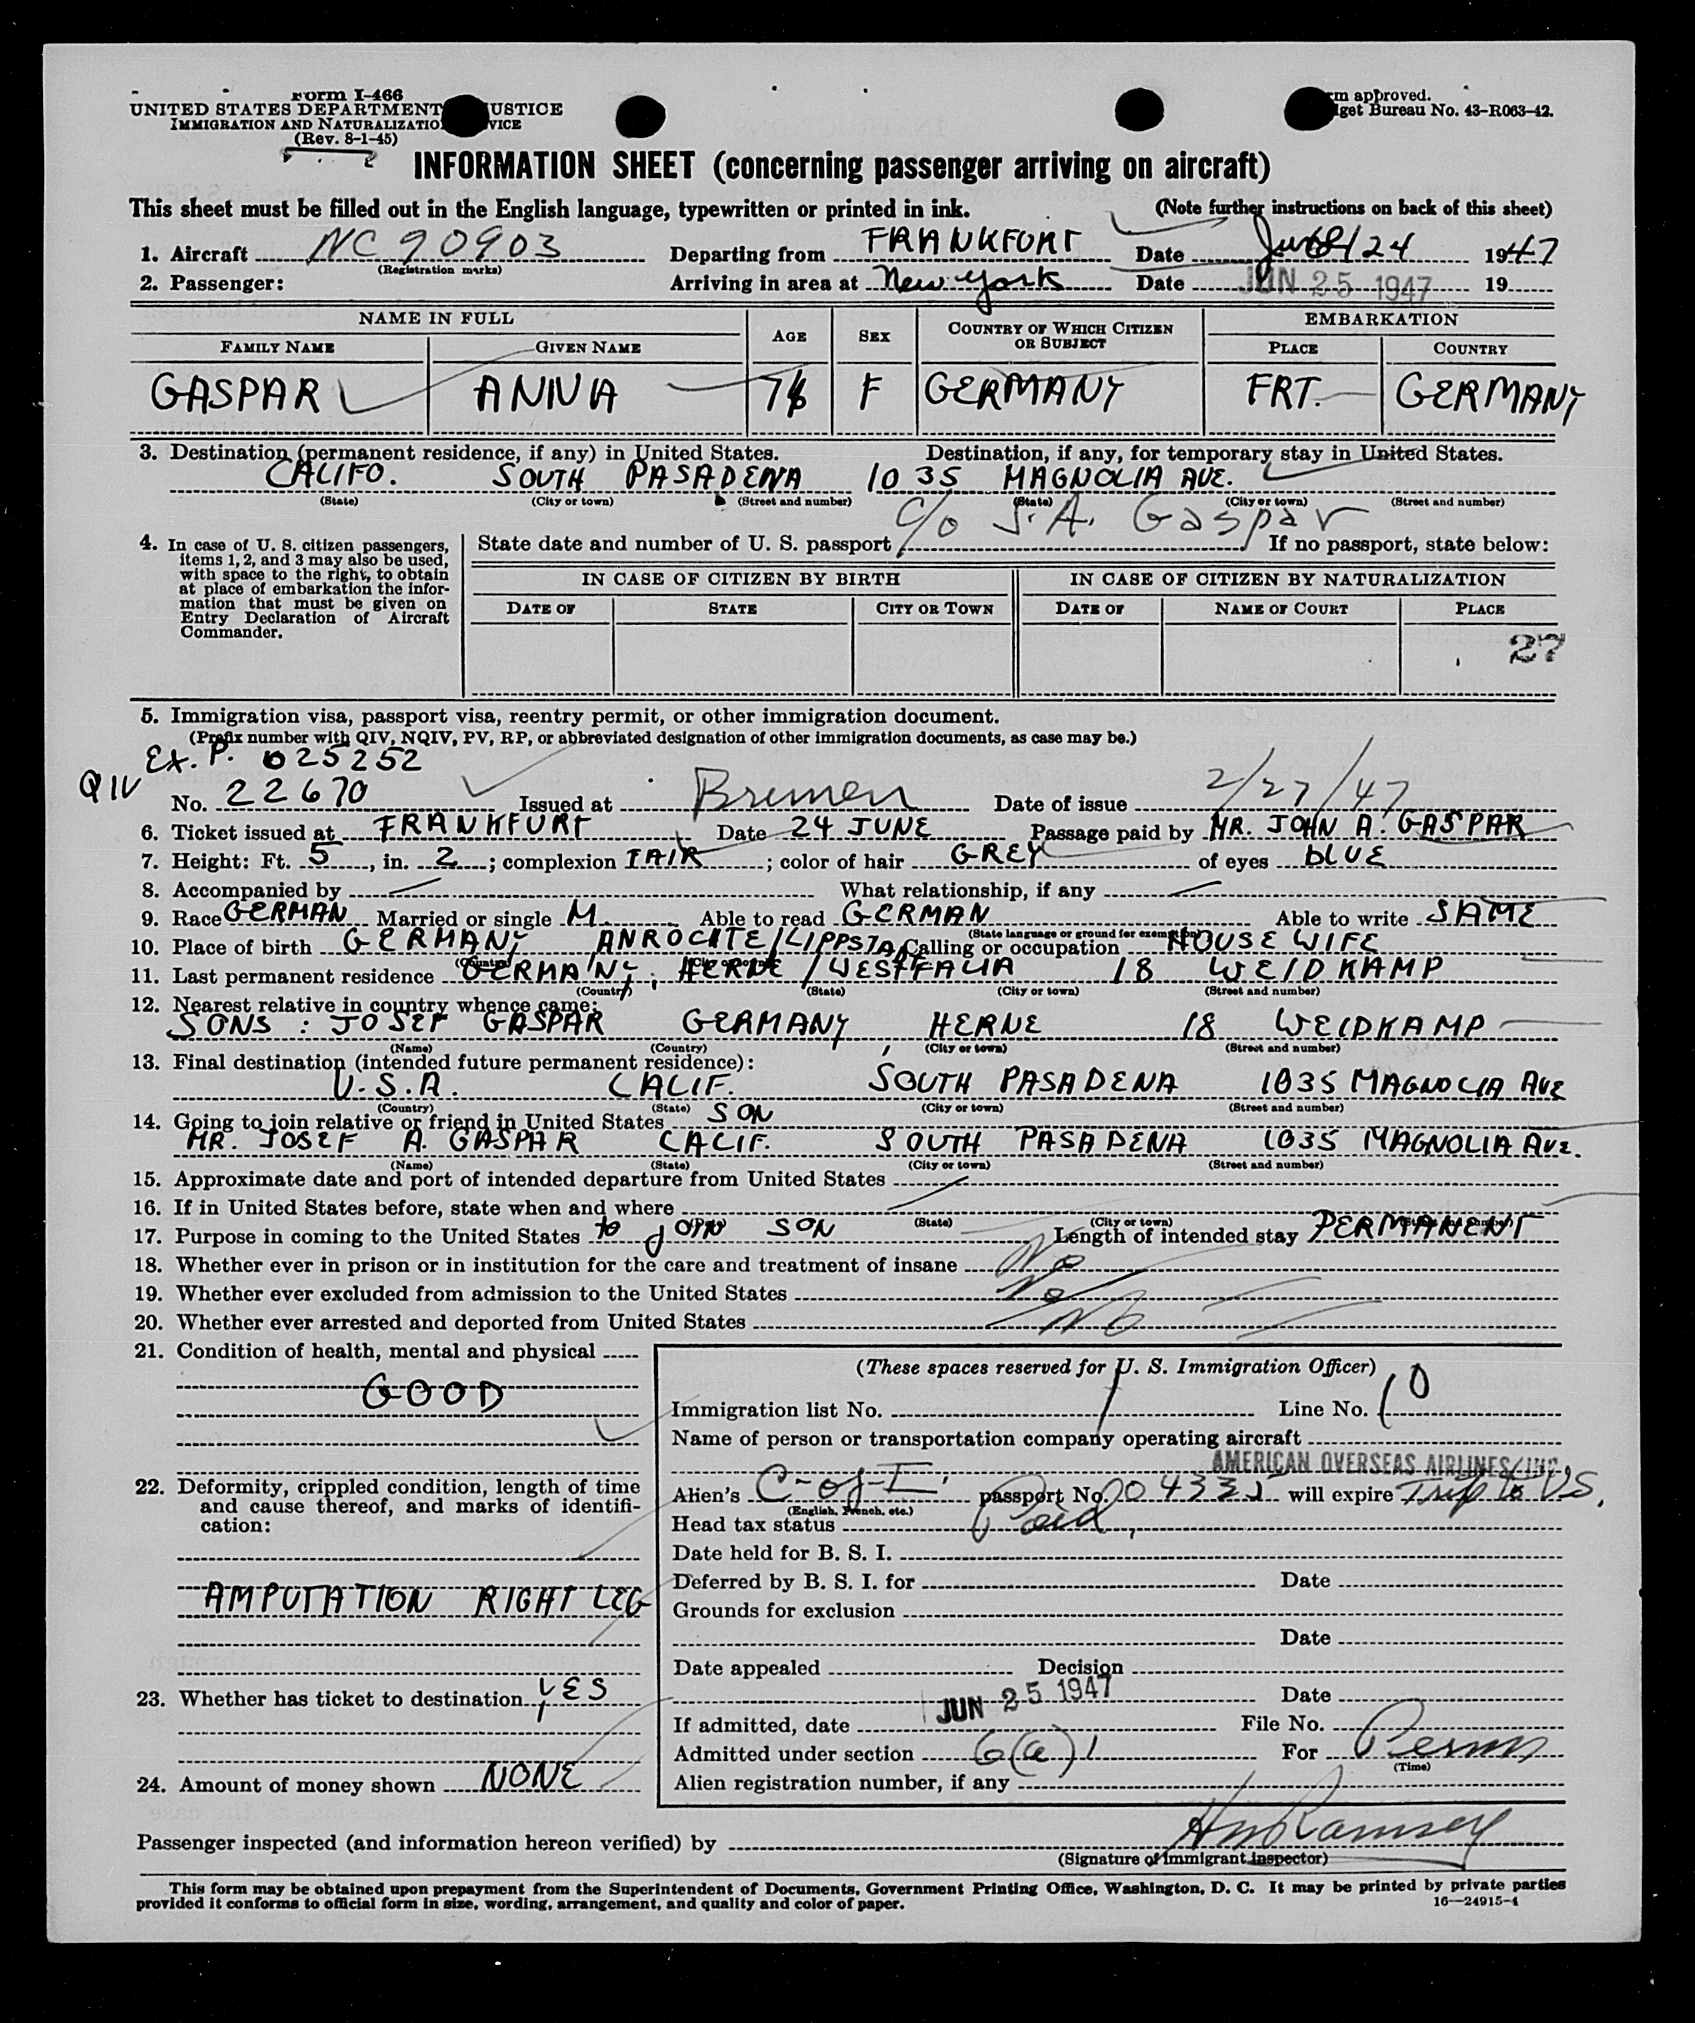 Form I-466
UNITED STATES DEPARTMENT JUSTICE
IMMIGRATION AND NATURALIZATION SERVICE
(Rev. 8-1-45)
Form approved.
Budget Bureau No. 43-R063-42.
INFORMATION SHEET (concerning passenger arriving on aircraft)
This sheet must be filled out in the English language, typewritten or printed in ink. (Note further instructions on back of this sheet)
1. Aircraft NC 90903 Departing from FRANKFURT Date 24 1947
(Registration marks)
2. Passenger: Arriving in area at New York Date JUN 25 1947 19
NAME IN FULL AGE SEX COUNTRY OF WHICH CITIZEN OR SUBJECT EMBARKATION
FAMILY NAME GIVEN NAME PLACE COUNTRY
GASPAR ANNA F GERMANY FRT. GERMANY
3. Destination (permanent residence, if any) in United States. Destination, if any, for temporary stay in United States.
CALIFO. SOUTH PASADENA 1035 MAGNOLIA AVE.
(State) (City or town) (Street and number) (State) (City or town) (Street and number)
c/o J. A. Gaspar
4. In case of U. S. citizen passengers, items 1, 2, and 3 may also be used, with space to the right, to obtain at place of embarkation the information that must be given on Entry Declaration of Aircraft Commander.
State date and number of U. S. passport If no passport, state below:
IN CASE OF CITIZEN BY BIRTH IN CASE OF CITIZEN BY NATURALIZATION
DATE OF STATE CITY OR TOWN DATE OF NAME OF COURT PLACE
27
5. Immigration visa, passport visa, reentry permit, or other immigration document.
(Prefix number with QIV, NQIV, PV, RP, or abbreviated designation of other immigration documents, as case may be.)
Ex. P. 025252
QIV No. 22670 Issued at Bremen Date of issue 2/27/47
6. Ticket issued at FRANKFURT Date 24 JUNE Passage paid by MR. JOHN A. GASPAR
7. Height: Ft. 5, in. 2; complexion FAIR; color of hair GREY of eyes BLUE
8. Accompanied by What relationship, if any
9. Race GERMAN Married or single M. Able to read GERMAN Able to write SAME
(State language or ground for exemption)
10. Place of birth GERMANY, Calling or occupation HOUSE WIFE
11. Last permanent residence GERMANY, HERNE / WESTFALIA 18 WEIDKAMP
(Country) (State) (City or town) (Street and number)
12. Nearest relative in country whence came:
SONS: JOSEF GASPAR GERMANY, HERNE 18 WEIDKAMP
(Name) (Country) (City or town) (Street and number)
13. Final destination (intended future permanent residence):
U.S.A. CALIF. SOUTH PASADENA 1035 MAGNOLIA AVE
(Country) (State) (City or town) (Street and number)
14. Going to join relative or friend in United States SON
MR. JOSEF A. GASPAR CALIF. SOUTH PASADENA 1035 MAGNOLIA AVE.
(Name) (State) (City or town) (Street and number)
15. Approximate date and port of intended departure from United States
16. If in United States before, state when and where
(State) (City or town)
17. Purpose in coming to the United States to JOIN SON Length of intended stay PERMANENT
18. Whether ever in prison or in institution for the care and treatment of insane No
19. Whether ever excluded from admission to the United States No
20. Whether ever arrested and deported from United States No
21. Condition of health, mental and physical
GOOD
22. Deformity, crippled condition, length of time and cause thereof, and marks of identification:
AMPUTATION RIGHT LEG
23. Whether has ticket to destination YES
24. Amount of money shown NONE
(These spaces reserved for U. S. Immigration Officer)
Immigration list No. 1 Line No. 10
Name of person or transportation company operating aircraft
AMERICAN OVERSEAS AIRLINES, INC.
Alien's C-of-I. passport No. will expire Trip to US.
(English, French, etc.)
Head tax status Paid
Date held for B. S. I.
Deferred by B. S. I. for Date
Grounds for exclusion
Date
Date appealed Decision
Date
If admitted, date JUN 25 1947 File No.
Admitted under section 6(a)1 For Perm
(Time)
Alien registration number, if any
Passenger inspected (and information hereon verified) by Ramsey
(Signature of Immigrant Inspector)
This form may be obtained upon prepayment from the Superintendent of Documents, Government Printing Office, Washington, D. C. It may be printed by private parties
provided it conforms to official form in size, wording, arrangement, and quality and color of paper.
16—24915-1